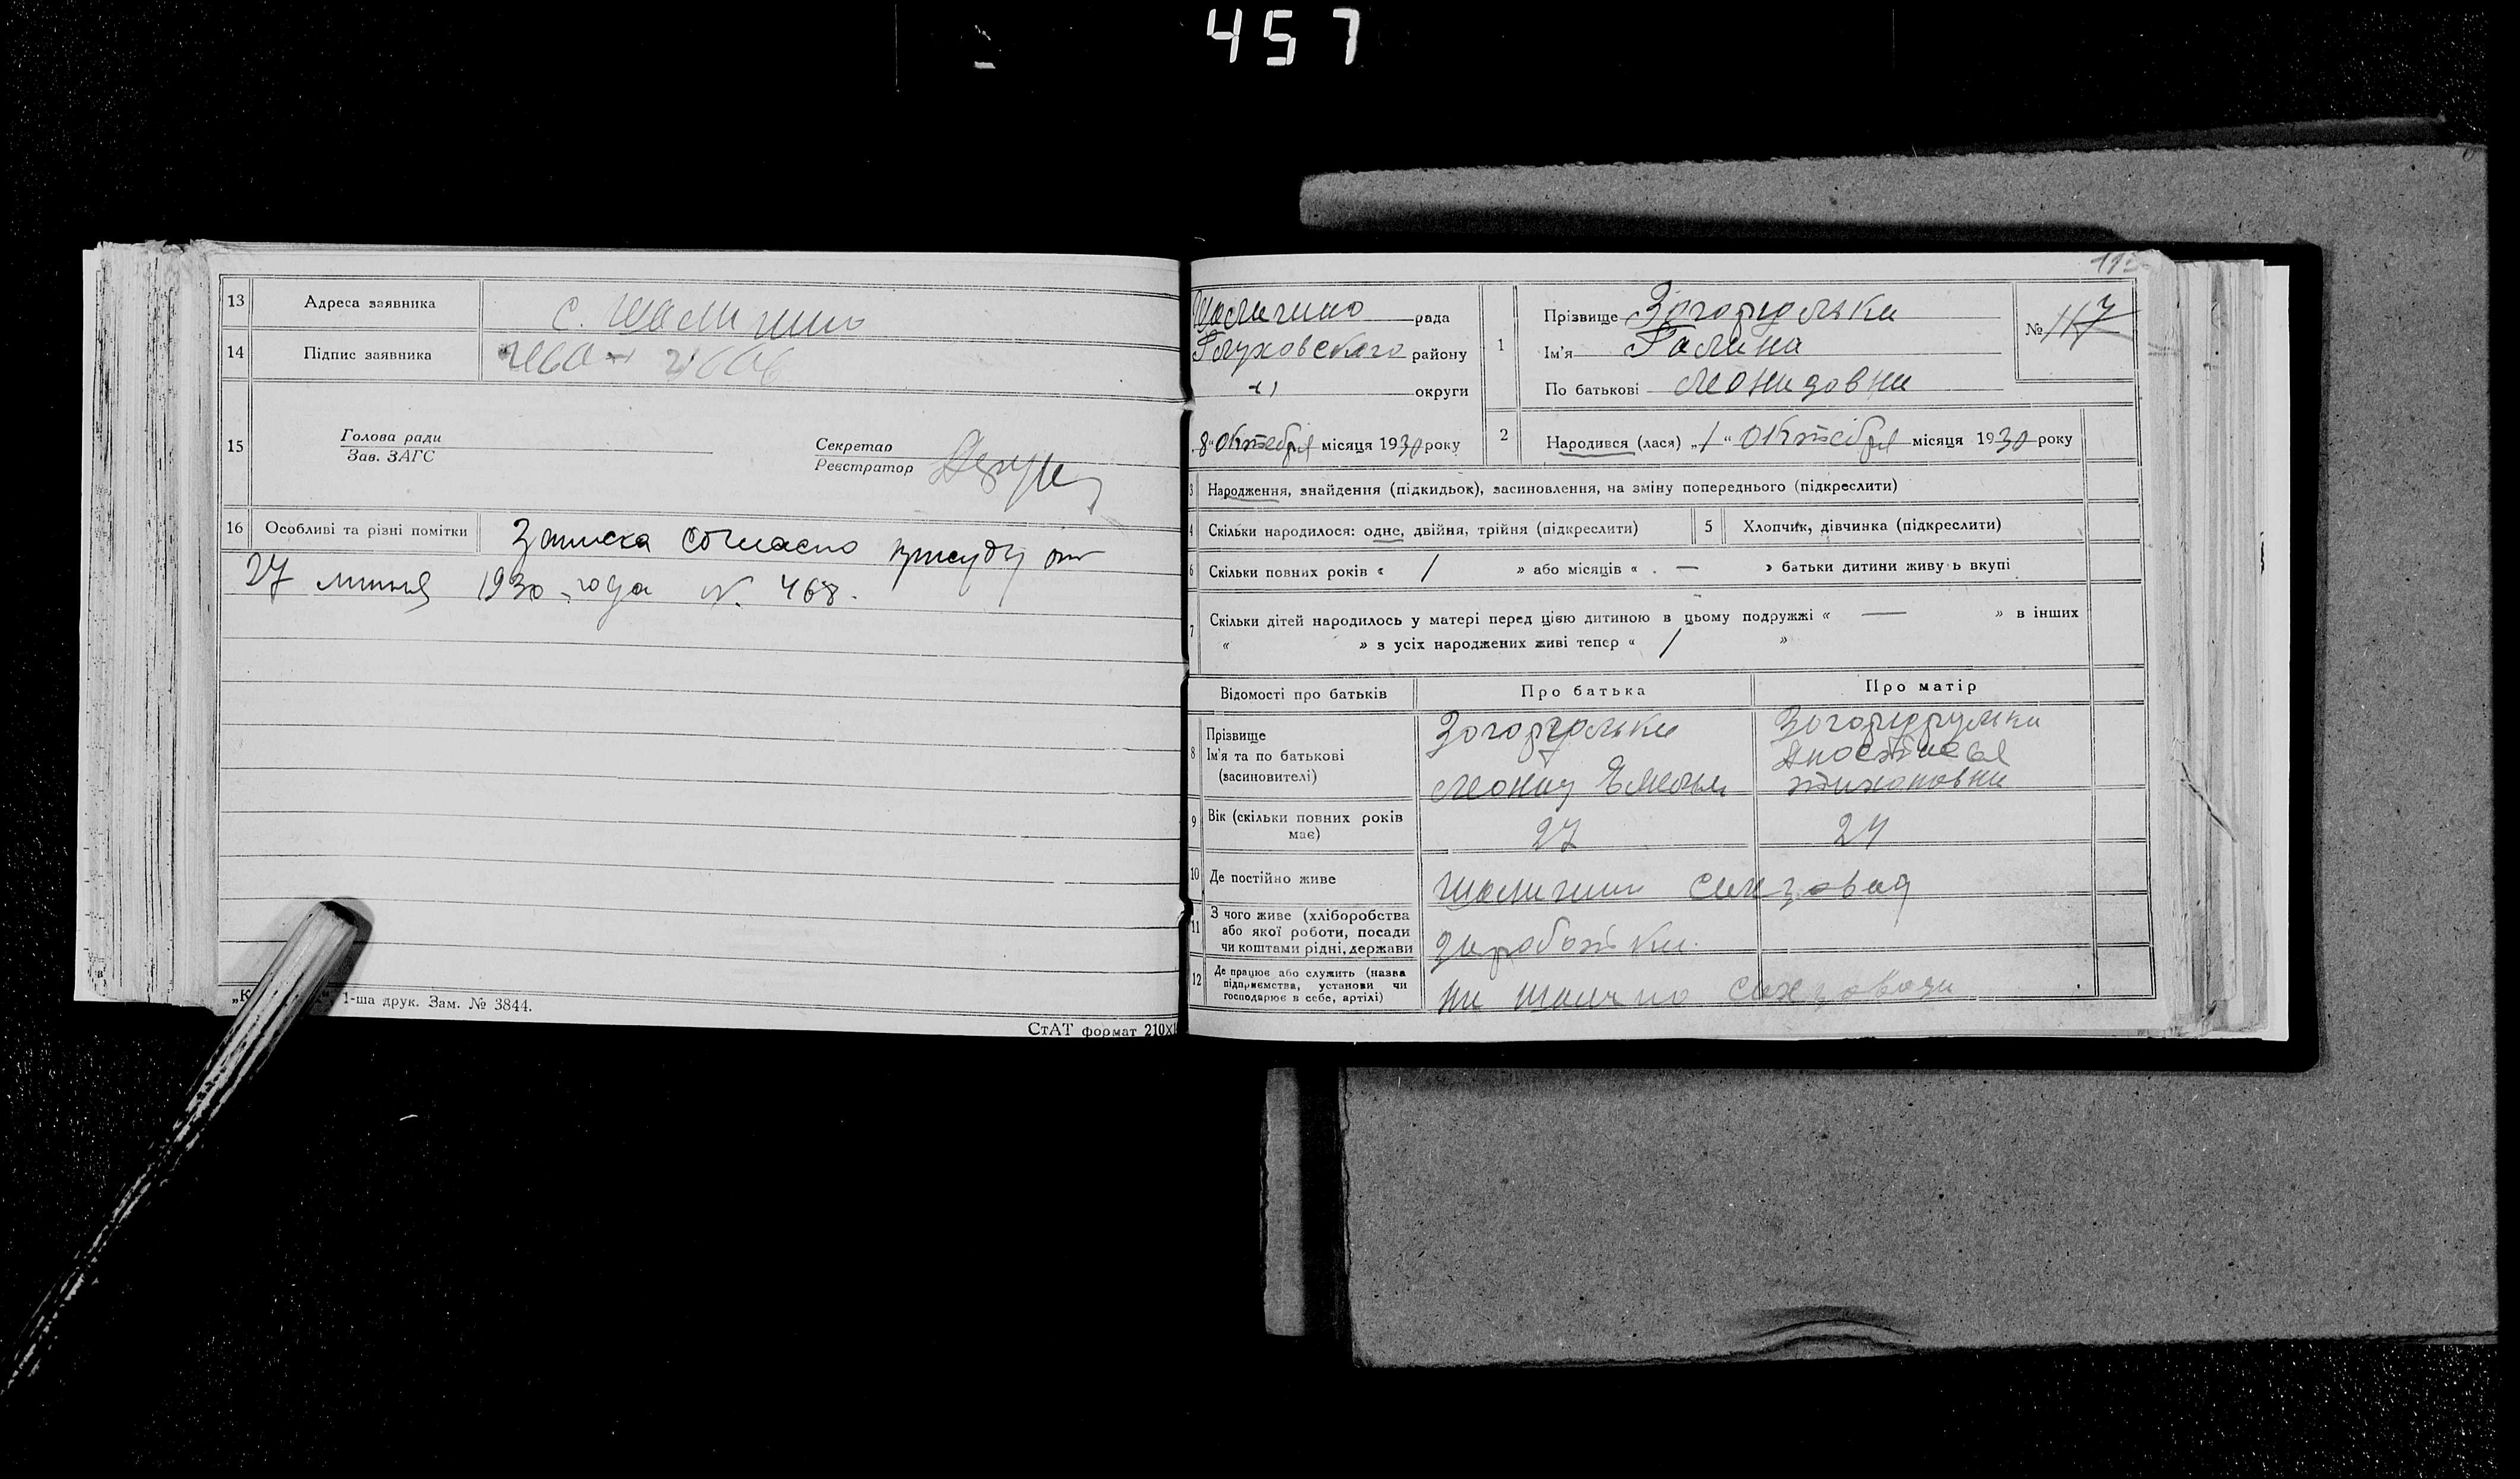 457
13 Адреса заявника с. Шалигино
14 Підпис заявника
15 Голова ради
Зав. ЗАГС
Секретар
Реєстратор
16 Особливі та різні помітки Записка согласно присуду от
27 липня 1930 года №. 468.
1-ша друк. Зам. № 3844.
СтАТ формат 210х
Шалигино рада
Глуховского району
округи
8 „ октебря місяця 1930 року
1 Прізвище
Ім'я Галина
По батькові Леонидовна
№ 117
2 Народився (лася) „1“ октебря місяця 1930 року
3 Народження, знайдення (підкидьок), засиновлення, на зміну попереднього (підкреслити)
4 Скільки народилося: одне, двійня, трійня (підкреслити) 5 Хлопчик, дівчинка (підкреслити)
6 Скільки повних років « / » або місяців « . — » батьки дитини живуть вкупі
7 Скільки дітей народилось у матері перед цією дитиною в цьому подружжі « — » в інших
« » з усіх народжених живі тепер « / »
Відомості про батьків Про батька Про матір
8 Прізвище
Ім'я та по батькові
(засиновителі)
Леонид
9 Вік (скільки повних років
має) 27 24
10 Де постійно живе Шалигин сахзавод
11 З чого живе (хліборобства
або якої роботи, посади
чи коштами рідні, держави заработки.
12 Де працює або служить (назва
підприємства, установи чи
господарює в себе, артілі) на сахзаводи